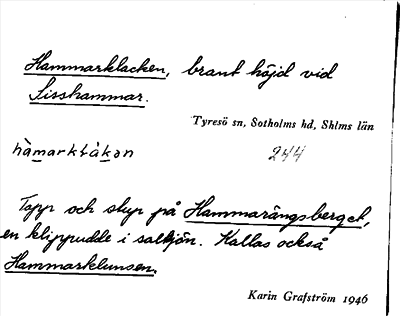 Hammarklacken, brant höjd vid
Sisshammar.
Tyresö sn, Sotholms hd, Sthlms län
244
Topp och stup på Hammarängsberget,
en klippudde i saltsjön. Kallas också
Hammarklunsen.
Karin Grafström 1946